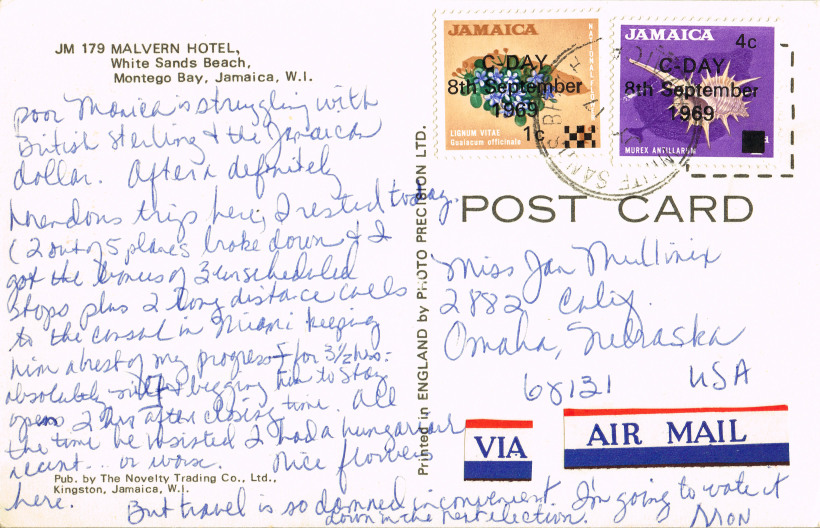 JM 179 MALVERN HOTEL,
White Sands Beach,
Montego Bay, Jamaica, W.I.
poor Monica is struggling with
British Sterling & the Jamaican
dollar. After a definitely
horendous trip here, I rested today.
(2 out of 5 planes broke down & I
got the bonus of 3 unscheduled
stops plus 2 long distance calls
to the consul in Miami keeping
him abrest of my progress for 3 1/2 hrs.
absolutely begging him to stay
open 2 hrs after closing time. All
the time he insisted I had a hungarian
accent... or worse. Nice flowers
here. But travel is so damned inconvenient. I'm going to vote it
down in the next election. Mon
Pub. by The Novelty Trading Co., Ltd.,
Kingston, Jamaica, W.I.
Printed in ENGLAND by PHOTO PRECISION LTD.
JAMAICA
NATIONAL FLOWER
C-DAY
8th September
1969
1c
LIGNUM VITAE
Guaiacum officinale
JAMAICA
4c
C-DAY
8th September
1969
MUREX ANTILLARUM
WHITE SANDS B
POST CARD
Miss Jan Mullinix
2882 Calif.
Omaha, Nebraska
68131 USA
VIA
AIR MAIL